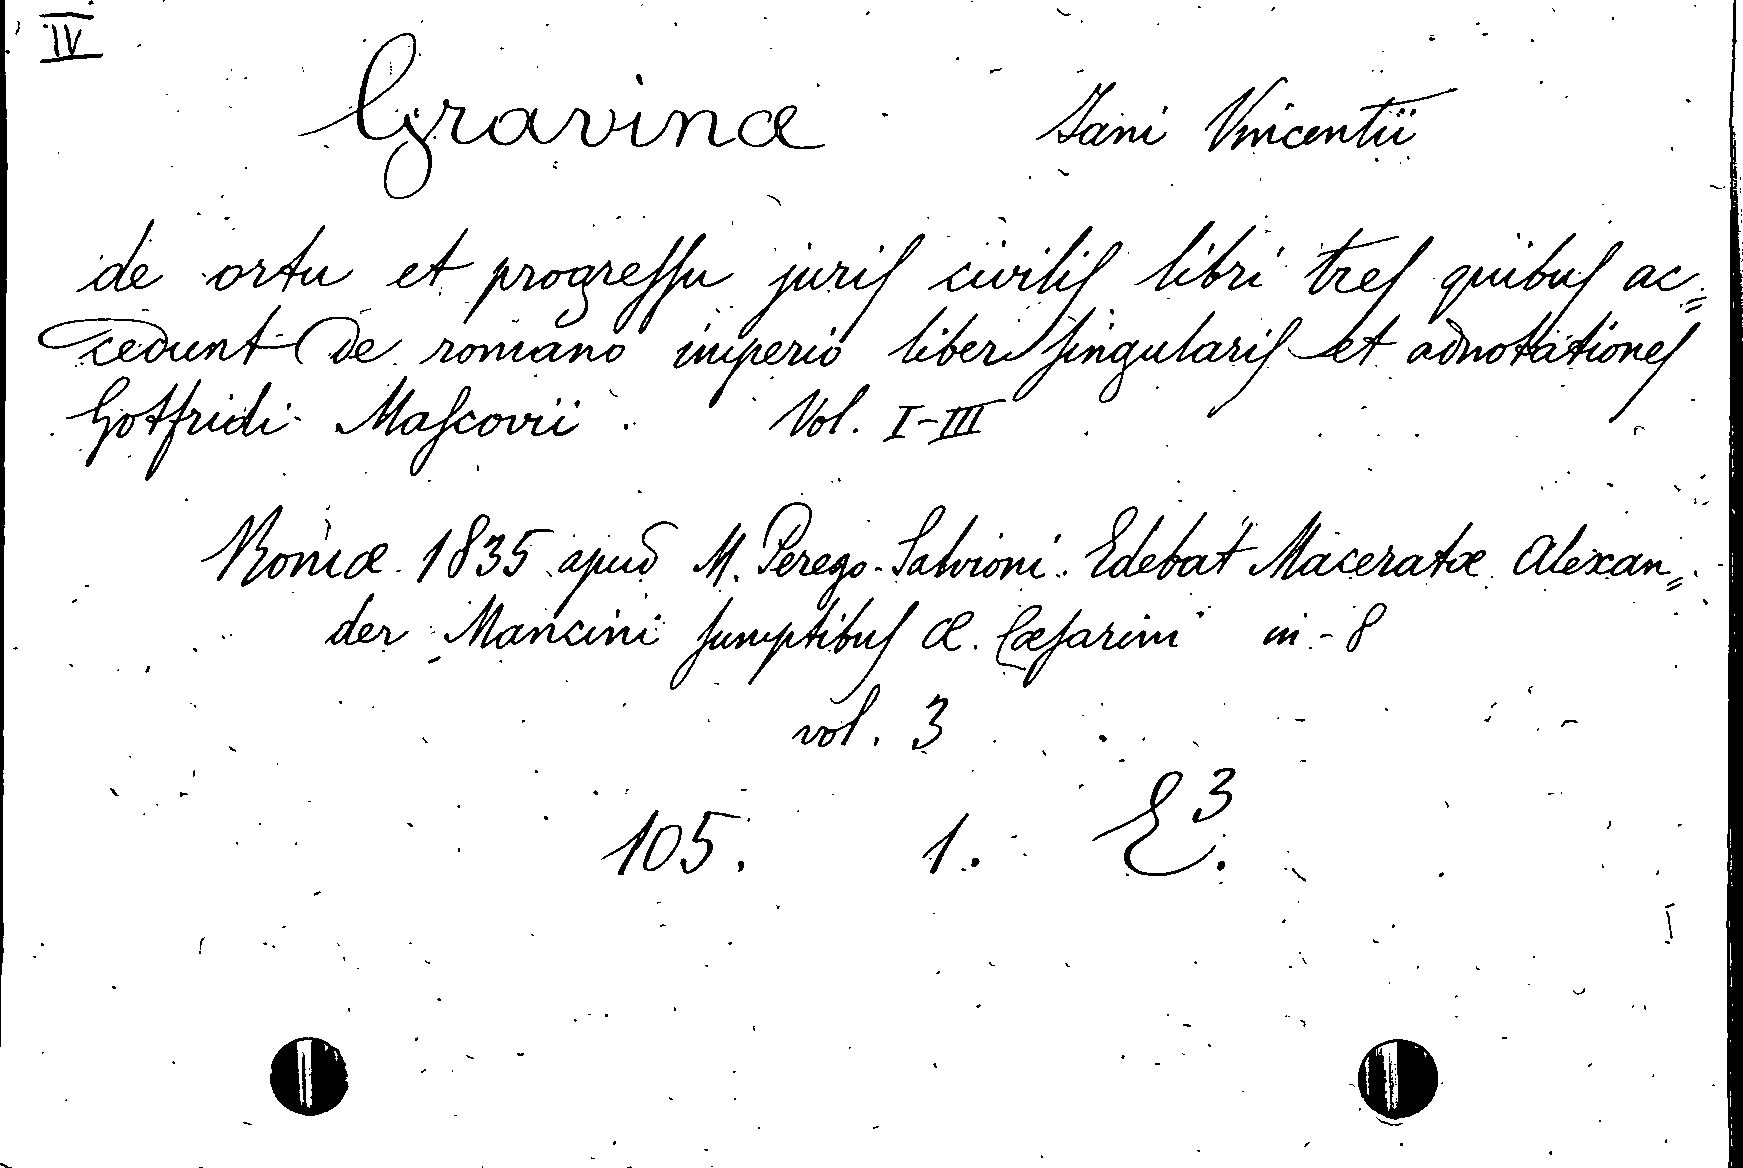 IV
Gravinæ Jani Vincentii
de ortu et progreſſu juriſ civiliſ libri treſ quibuſ ac=
cedunt de romano imperio liber ſingulariſ et adnotationeſ
Gotfridi Maſcovii Vol. I-III
Romæ 1835 apud M. Perego-Salvioni. Edebat Maceratæ Alexan=
der Mancini ſumptibuſ Æ. Cæſarini in-8
vol. 3
105. 1. E³.